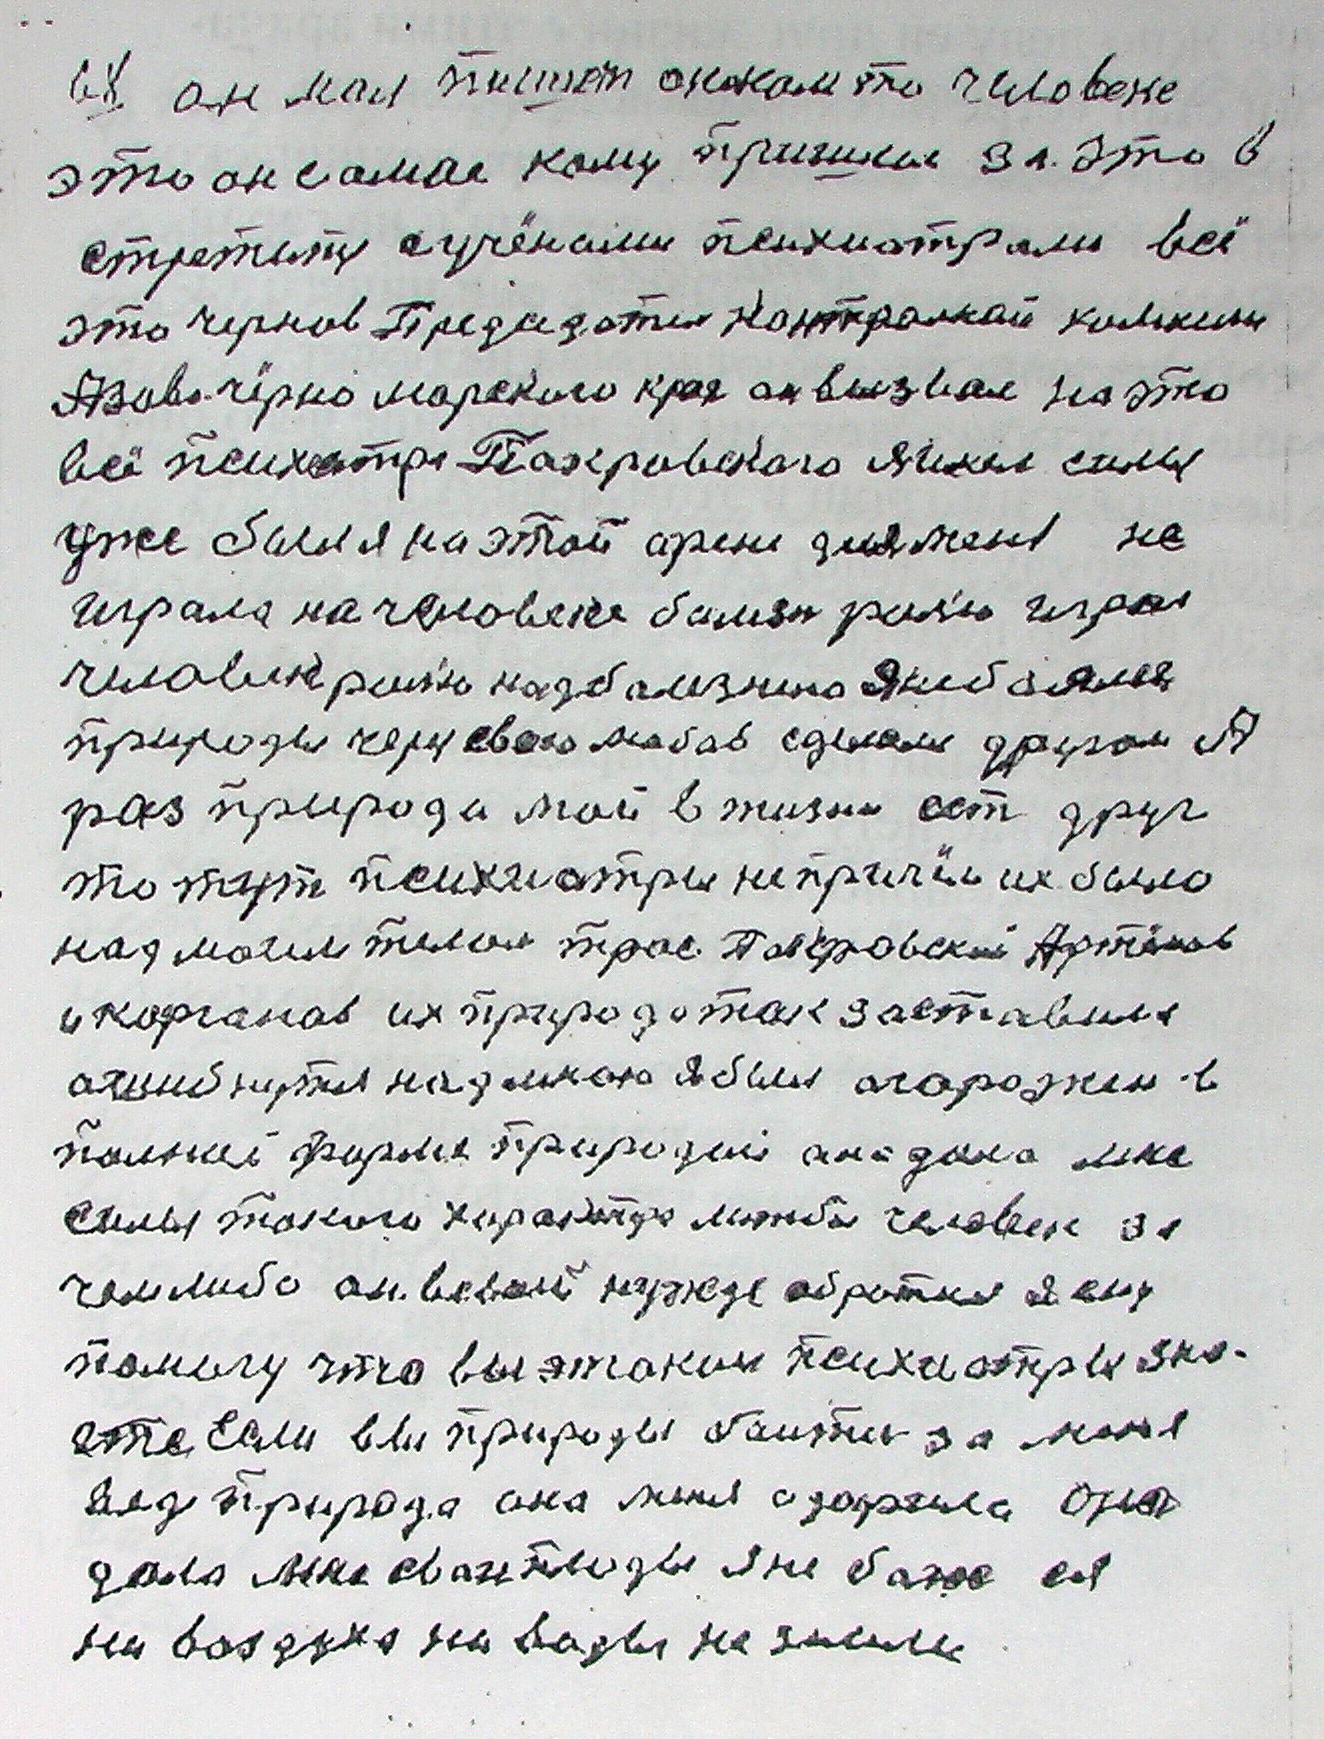 ых он мол пишет онком то человеке
это он самое кому пришлся за это в
стретится сучёнами психиатрами всё
это чернов Председател Контролной комисии
Азово чёрно морского края он вызвал на это
всё психиатра Пакровского
уже был я на этой арене для меня не
играла на человеке балезн ролю играл
человек ролю над балезнию Я не баялся
природы через свою любов сделали другом А
раз природа мой в жизни ест друг
то тут психиатры непричём их было
над моем телом трое Пакровский Артёмов
и корганов их природа так заставила
ошибнутся надмною я был огорожен в
полной форме природой она дала мне
силы такого характера любой человек за
чем либо он. всвоей нужде обратился я ему
помогу что вы э такии психиатры зна-
ете Если вы природы баитис за меня
вед природа она меня одарила она
дала мне сваи плоды я не баюс ся
ни воздуха ни воды не земли